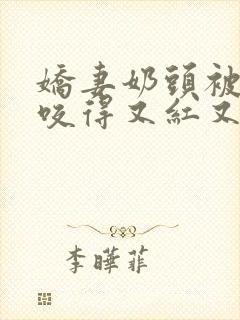 嬌妻奶頭被
咬得又紅又
李曄菲